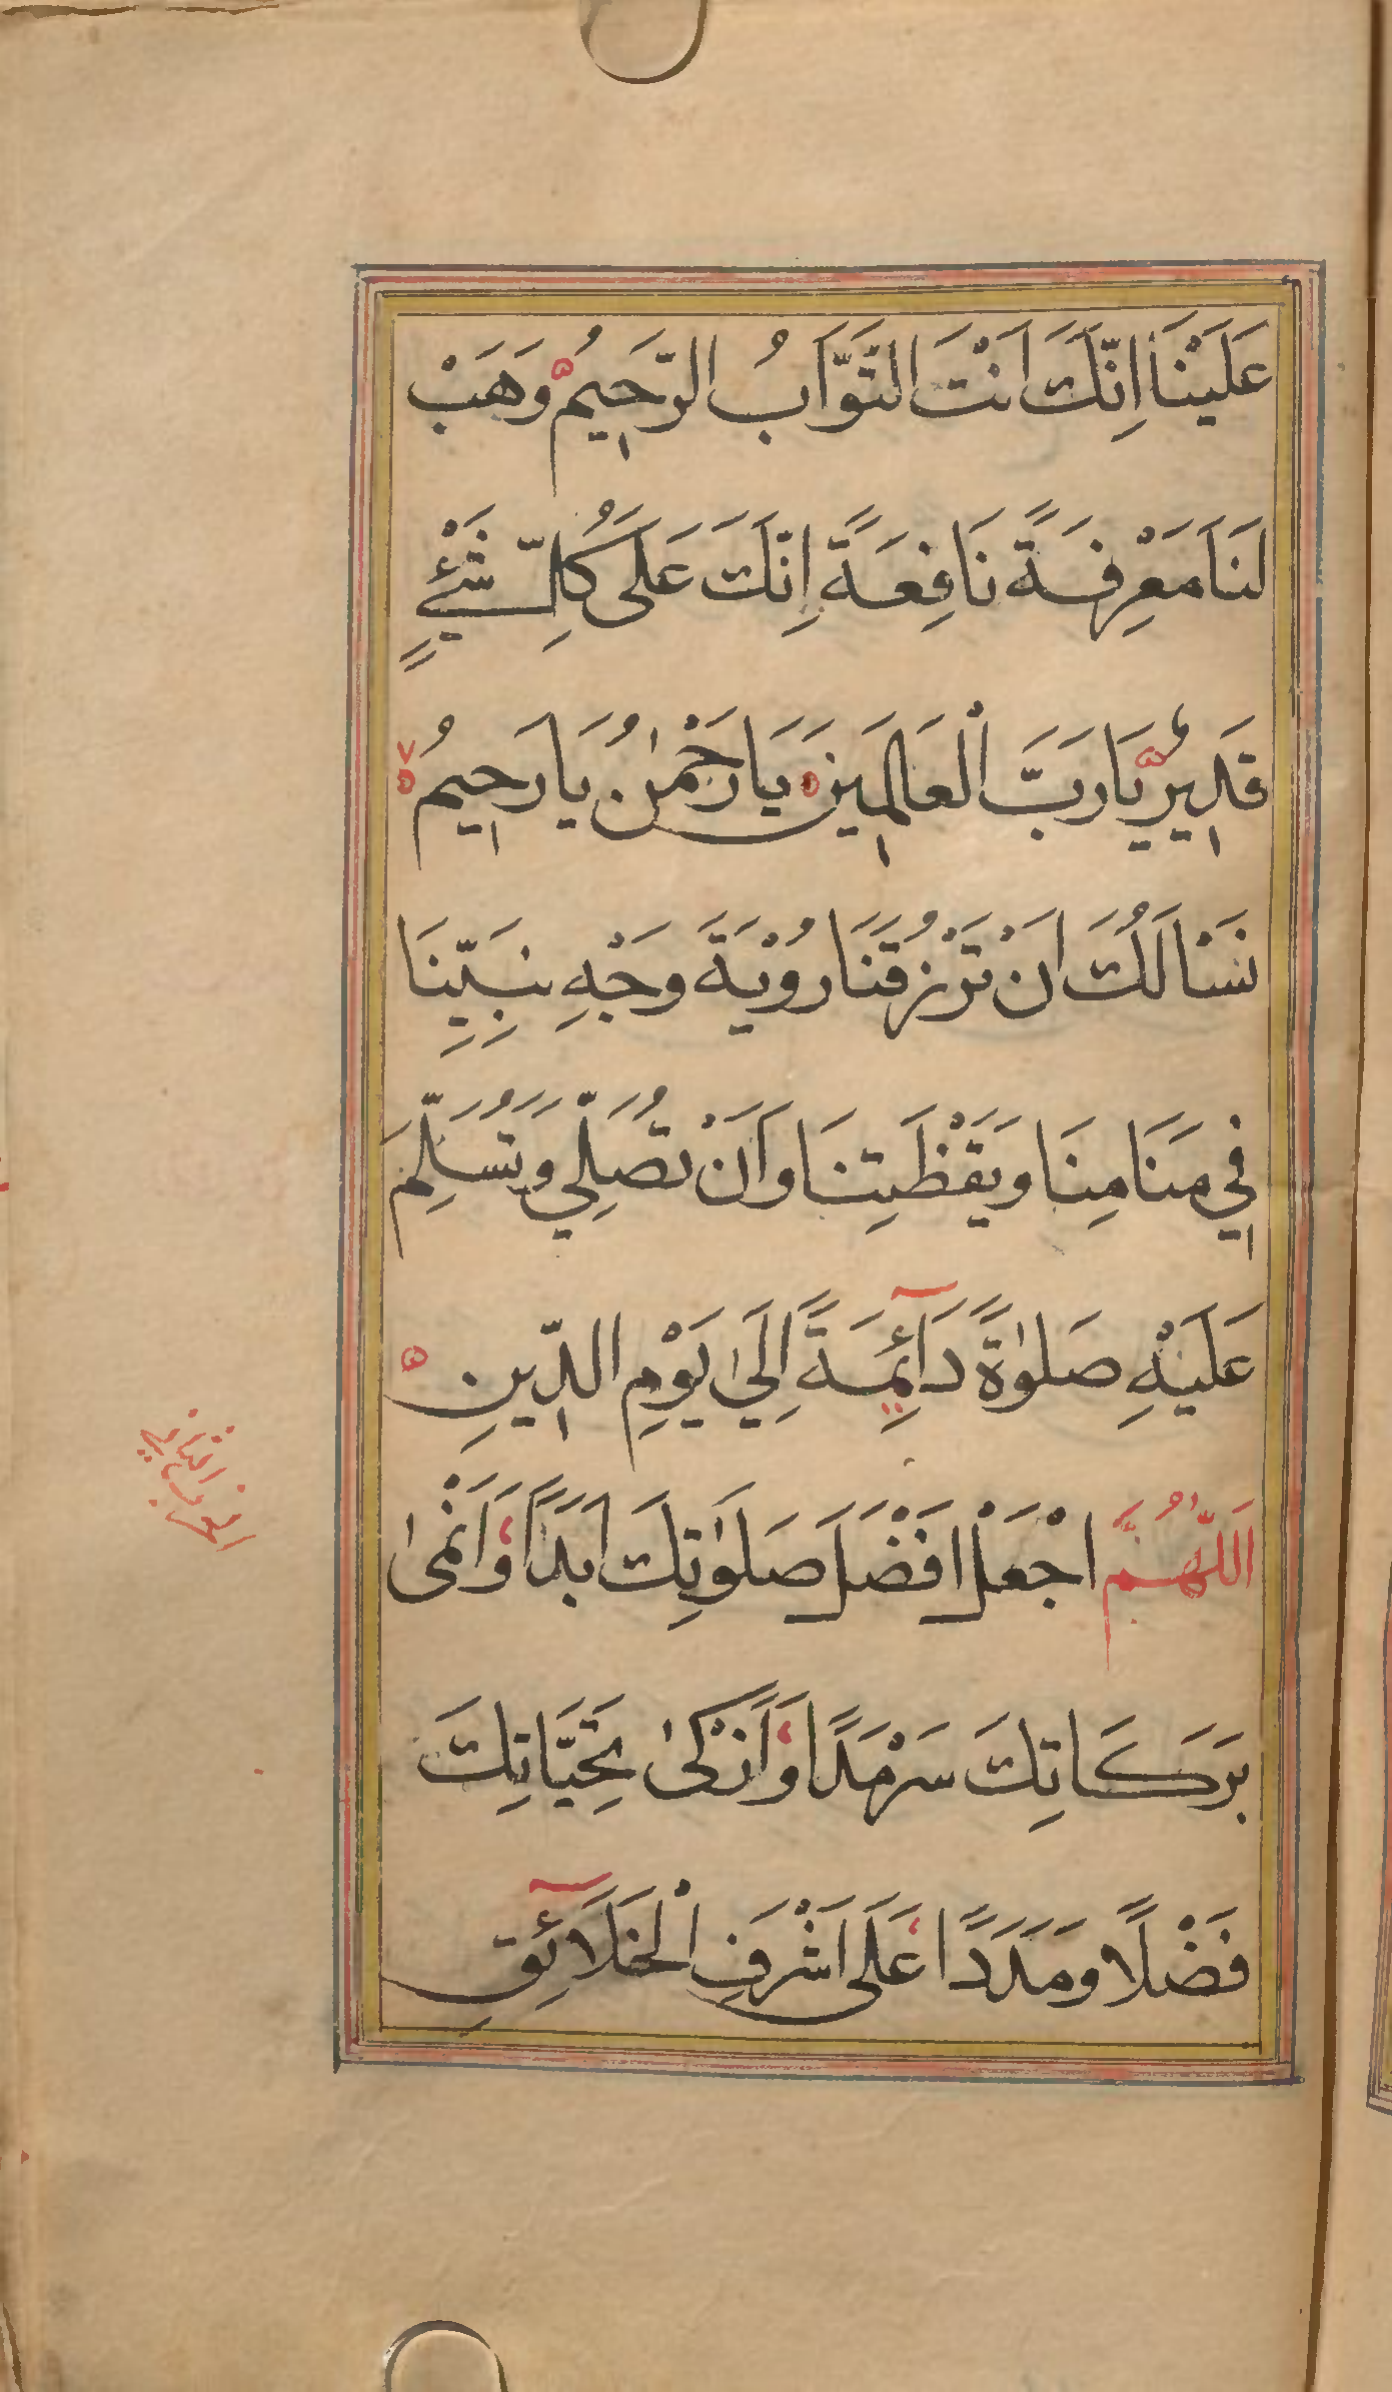 عَلَيْنَا اِنَّكَ اَنْتَ التَّوَّابُ الرَّحِيمُ وَهَبْ
لَنَا مَعْرِفَةً نَافِعَةً اِنَّكَ عَلَى كُلِّ شَيْءٍ
قَدِيرٌ يَا رَبَّ الْعَالَمِينَ يَا رَحْمٰنُ يَا رَحِيمُ
نَسْاَلُكَ اَنْ تَرْزُقَنَا رُوْيَةَ وَجْهِ نَبِيِّنَا
فِي مَنَامِنَا وَيَقْظَتِنَا وَاَنْ تُصَلِّيَ وَتُسَلِّمَ
عَلَيْهِ صَلٰوةً دَآئِمَةً اِلَىٰ يَوْمِ الدِّينِ
اَللّٰهُمَّ اجْعَلْ اَفْضَلَ صَلَوٰتِكَ اَبَدًا وَاَنْمٰى
بَرَكَاتِكَ سَرْمَدًا وَاَزْكٰى تَحِيَّاتِكَ
فَضْلًا وَمَدَدًا عَلَى اَشْرَفِ الْخَلَآئِقِ
الحزب الثاني